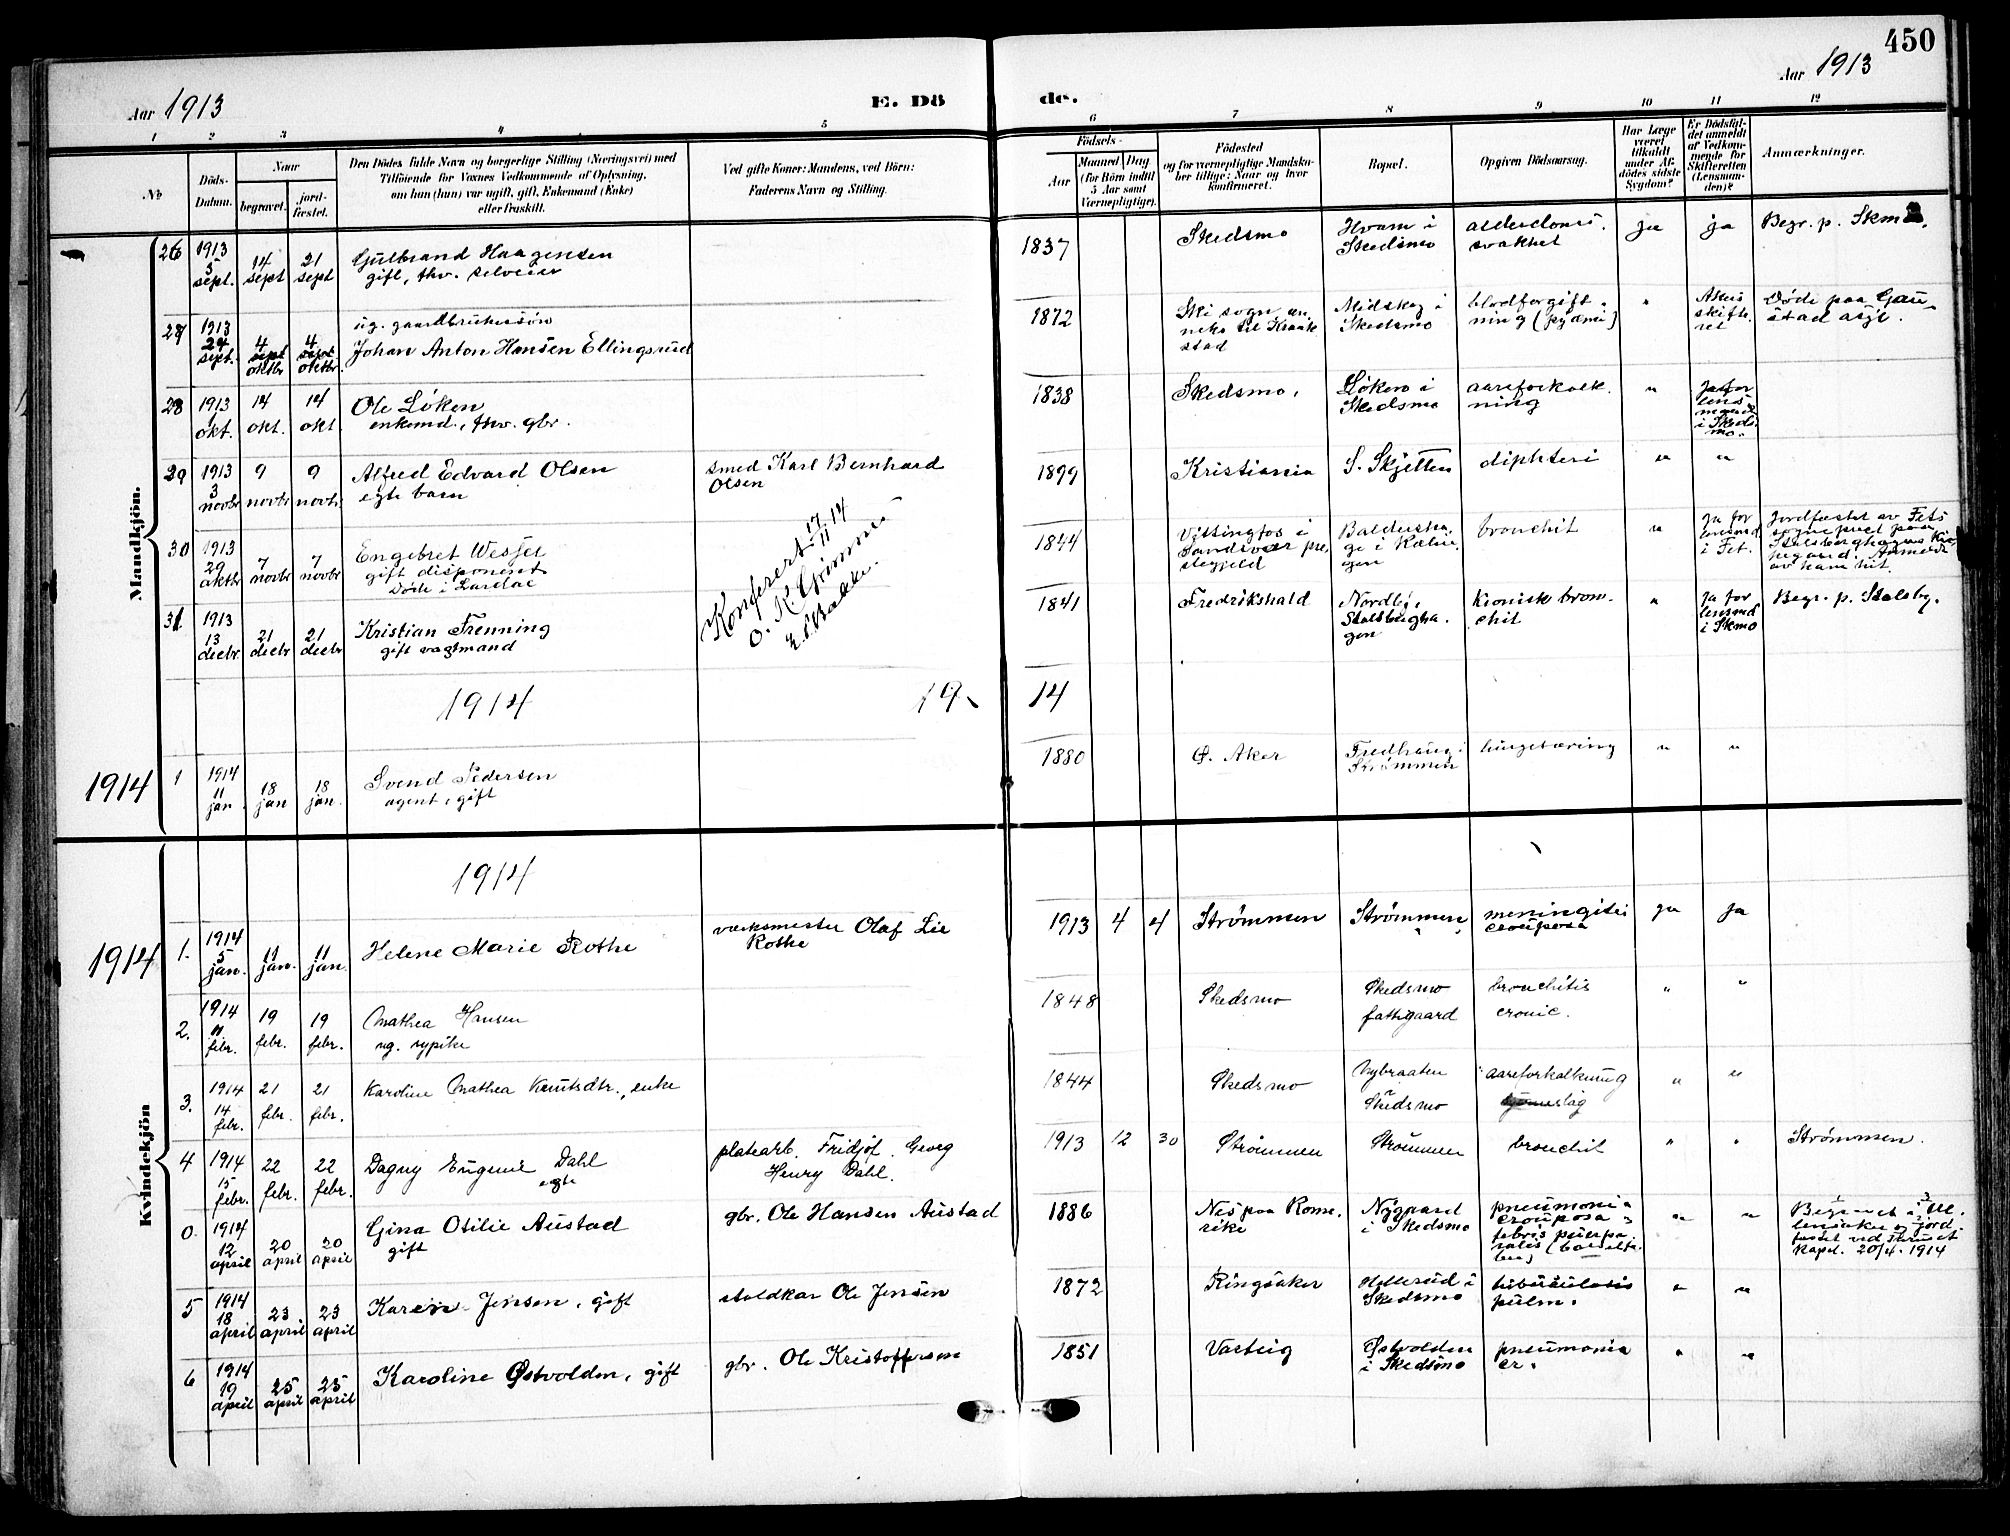 450
Aar 1913
E. Dö
de.
Aar 1913
1
2
3
4
5
6
7
8
9
10
11
12
No
Döds-
Datum.
Naar
begravet.
jord-
fæstet.
Den Dödes fulde Navn og borgerlige Stilling (Næringsvei) med
Tilföiende for Voxnes Vedkommende af Oplysning,
om han (hun) var ugift, gift, Enkemand (Enke)
eller fraskilt.
Ved gifte Koner: Mandens, ved Börn:
Faderens Navn og Stilling.
Födsels-
Aar
Maaned Dag
(for Börn indtil
5 Aar samt
Værnepligtige).
Födested
og for værnepligtige Mandska-
ber tillige: Naar og hvor
konfirmeret.
Bopæl.
Opgiven Dödsaarsag.
Har Læge
været
tilkaldt
under Af-
dödes sidste
Sygdom?
Er Dödsfal-
det anmeldt
af Vedkom-
mende for
Skifteretten
(Lensman-
den)?
Anmærkninger.
Mandkjön.
26
1913
5
sept.
14
sept
21
sept
Gulbrand Haagensen
gift, fhv. selveier
1837
Skedsmo
Hvam i
Skedsmo
alderdoms
svakhet
ja
ja
Begr. p. Skmo.
27
1913
24
sept.
4
sept
oktbr
4
sept
oktbr.
ug. gaardbrukersøn
Johan Anton Hansen Ellingsrud
1872
Ski sogn an-
neks til Kraak-
stad
Midskog i
Skedsmo
blodforgift-
ning (pydmi)
"
Akers
skifte-
ret
Døde paa Gau-
stad asyl.
28
1913
1
okt.
14
okt.
14
okt.
Ole Løken
enkemd., fhv. gbr.
1838
Skedsmo.
Løken i
Skedsmo
aareforkalk-
ning
"
Ja for
lens-
mand
i Skeds-
mo.
29
1913
3
novbr
9
novbr
9
novbr.
Alfred Edvard Olsen
egte barn
smed Karl Bernhard
Olsen
1899
Kristiania
S. Skjetten
difteri
"
"
30
1913
29
oktbr
7
novbr
7
novbr
Engebret Wessel
gift disponent
Døde i Lardal
1844
Vittingfos i
Sandsvær pre-
stegjeld
bronchit
"
Ja for
lensmd
i Fet.
Jordfæstet av Fets
sogneprest paa
31
1913
13
decbr
21
decbr
21
decbr
Kristian Frenning
gift vagtmand
Konferert 17/11 14
O. K. Grimnes
1841
Fredrikshald
Nordby,
Stalsbergha-
gen
kronisk bron-
chit
"
Ja for
lensmd
i Skmo
Begr. p. Stalsbg.
1914
1914
1914
1
1914
11
jan
18
jan
18
jan.
Svend Pedersen
agent, gift
1880
Ø. Aker
Fredhaug
Strømmen
lungetæring
"
"
Kvindekjön
1914
1914
1.
1914
5
jan.
11
jan.
11
jan.
Helene Marie Rothe
verksmester Olaf Lie
Rothe
1913
4
4
Strømmen
Strømmen
meningitis
crouposa
ja
ja
2.
1914
11
febr.
19
febr.
19
febr.
Mathea Hansen
ug. sypike
1848
Skedsmo
Skedsmo
fattigaard
bronchitis
cronic.
"
"
3.
1914
14
febr.
21
febr.
21
febr.
Karoline Mathea Knutsdtr., enke
1844
Skedsmo
Nybraaten
Skedsmo
aareforkalkning
hjerneslag
"
"
4
1914
15
febr.
22
febr.
22
febr.
Dagny Eugenie Dahl
egte
platearb. Fridjof Georg
Henry Dahl.
1913
12
30
Strømmen
Strømmen
bronchit
"
"
Strømmen.
0.
1914
12
april
20
april
20
april
Gina Otilie Austad
gift
gbr. Ole Hansen Austad
1886
Nes paa Rome-
rike
Nygaard
i Skedsmo
pneumonia
crouposa,
febris puerpe-
ralis (barselfe-
ber)
"
"
Begravet i Ul-
lensaker og jord-
fæstet ved Furuset
kapel. 20/4. 1914
5
1914
18
april
23
april
23
april
Karen Jensen, gift
staldkar Ole Jensen
1872
Ringsaker
Hellerud i
Skedsmo
tuberculosis
pulm.
"
"
6
1914
19
april
25
april
25
april
Karoline Østvolden, gift
gbr. Ole Kristoffersen
1851
Varteig
Østvolden
i Skedsmo
pneumonia
cr.
"
"